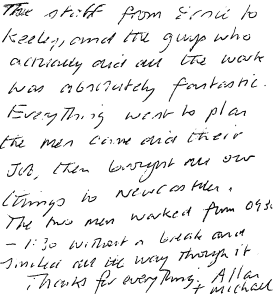 The staff from Ernie to
Keeley, and the guys who
actually did all the work
was absolutely fantastic.
Everything went to plan
the men came did their
Job, then brought all our
things to Newcastle.
The two men worked from 0930
- 1:30 without a break and
smiled all the way through it
Thanks for everything. Allan
+ Michael